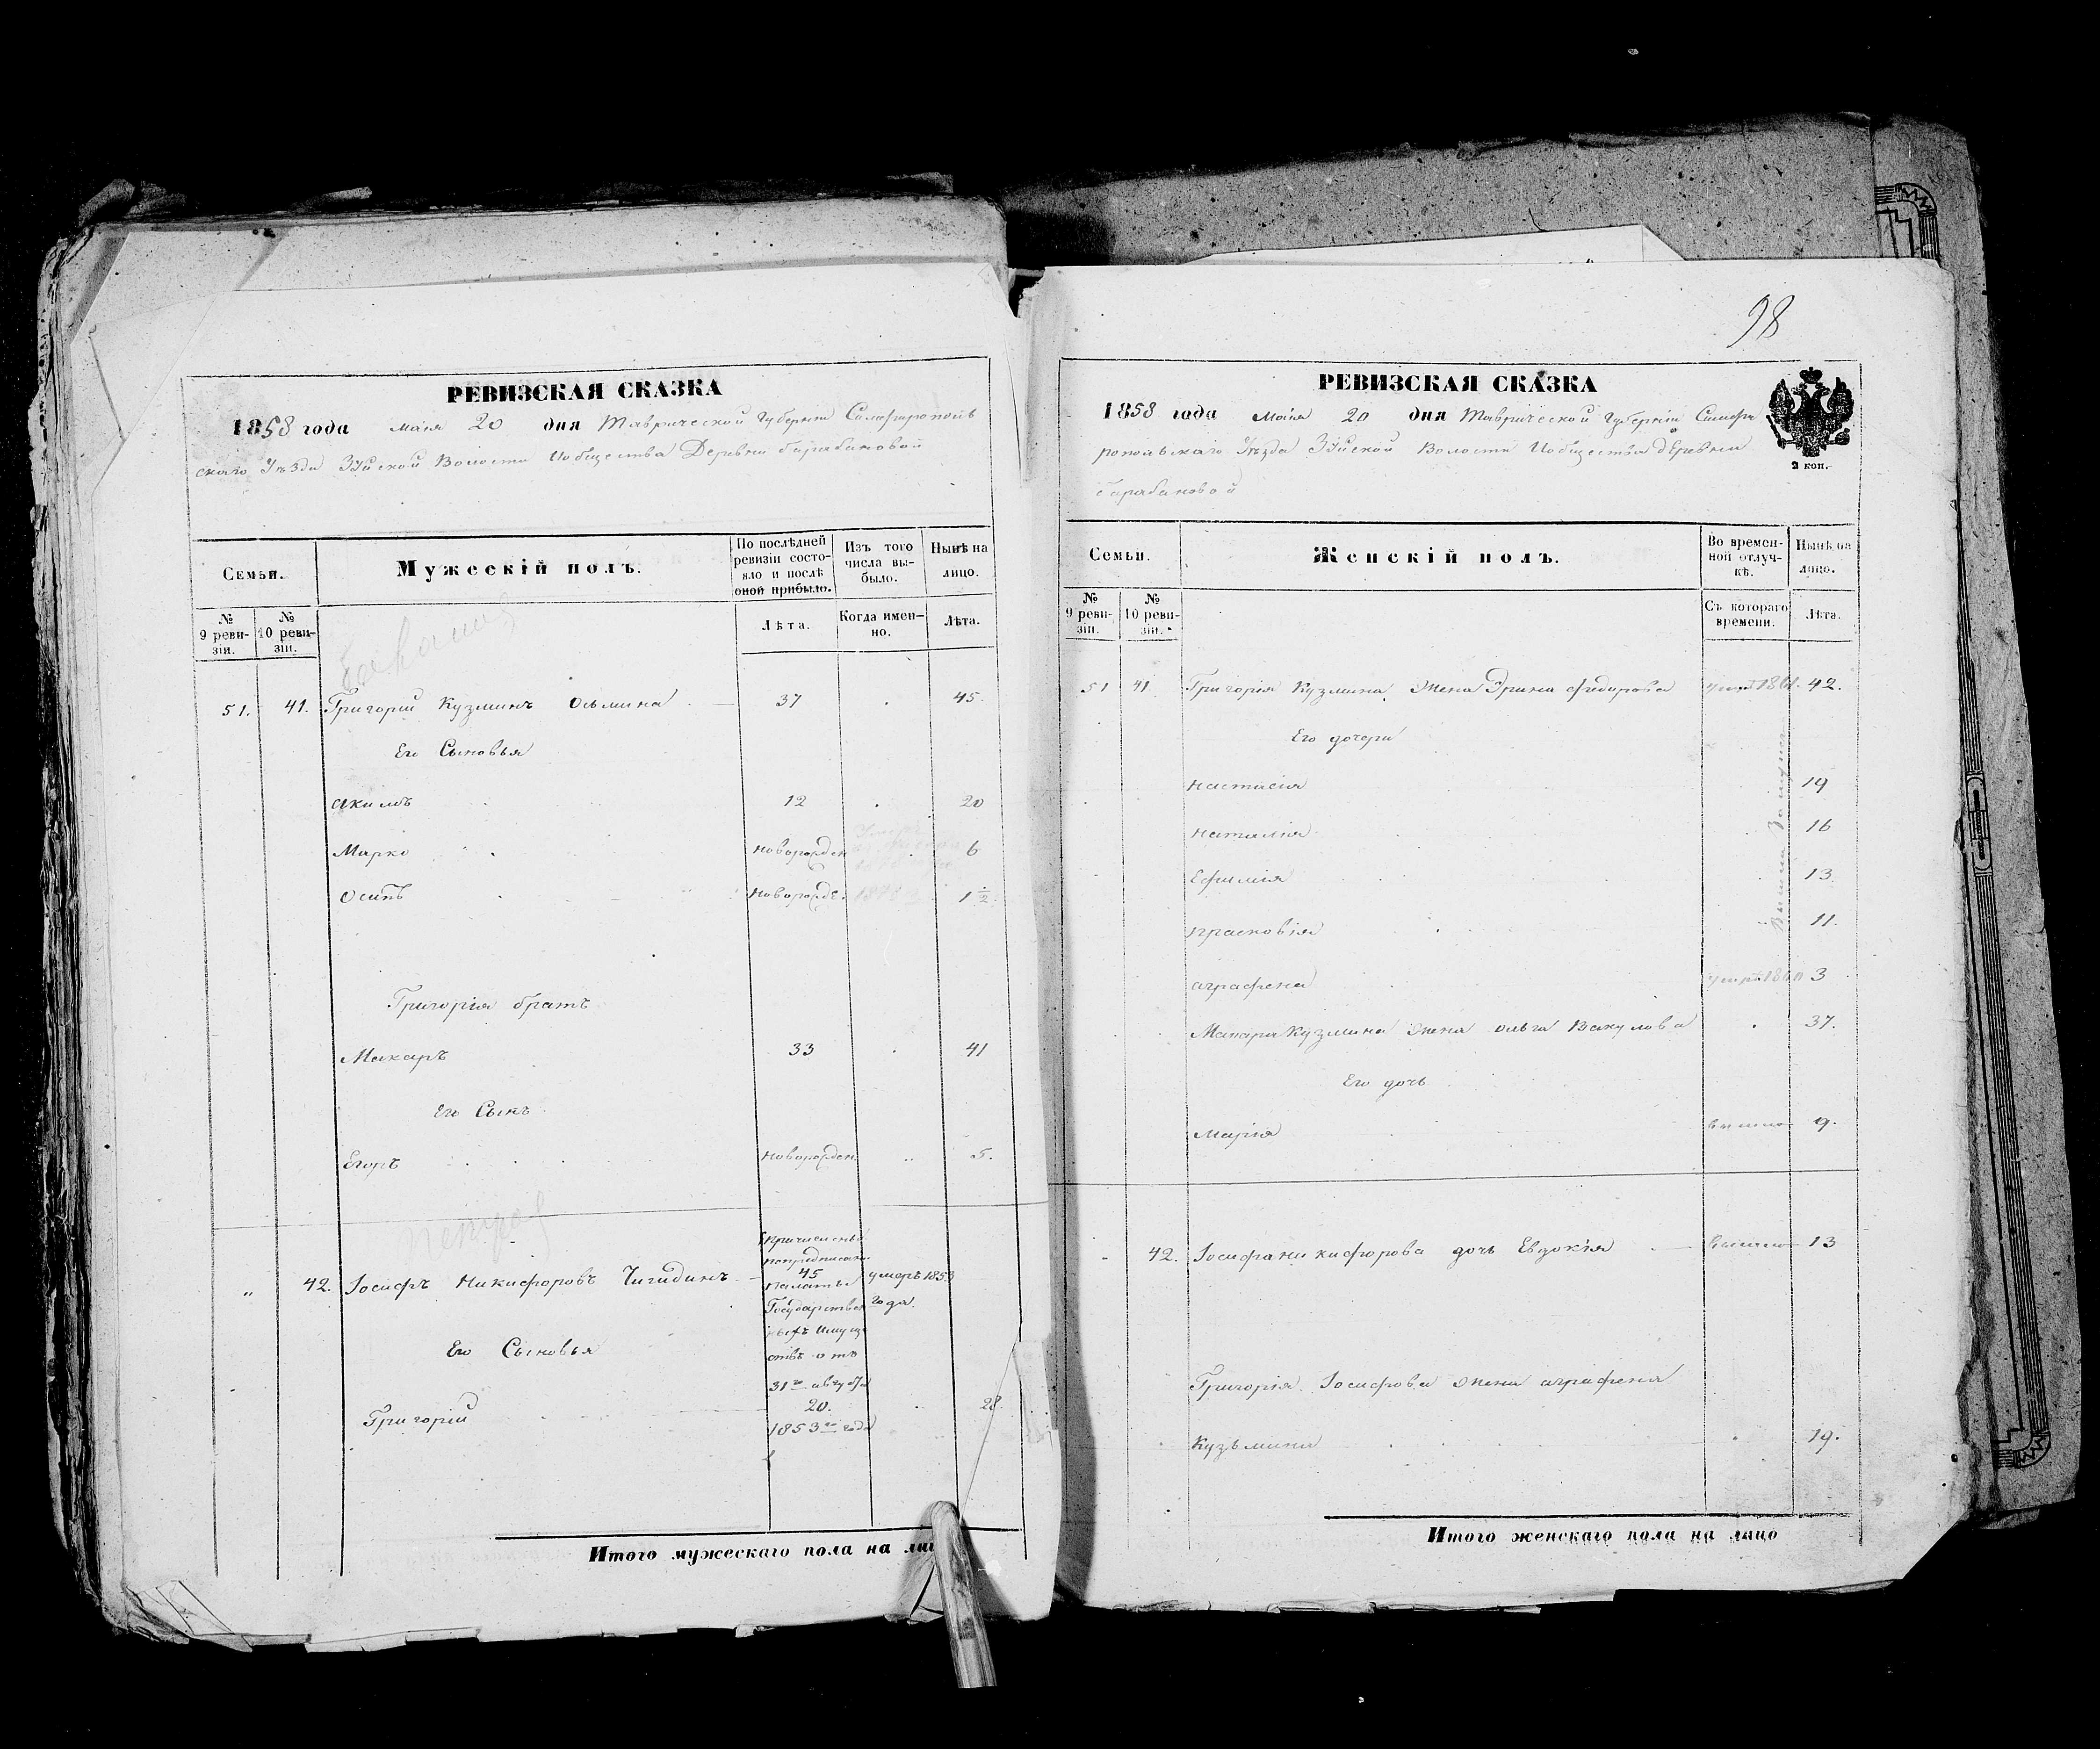 98
РЕВИЗСКАЯ СКАЗКА
1858 года маія 20 дня Таврической Губерніи Симферополь
скаго Уѣзда Зуйской Волости Деревни барабановой
Семьи.
Мужескій полъ.
По послѣдней ревизіи состояло и послѣ оной прибыло.
Изъ того числа выбыло.
Нынѣ на лицо.
№ 9 ревизіи.
№ 10 ревизіи.
Лѣта.
Когда именно.
Лѣта.
51. 41. Григорій Кузминъ Осьмина 37 45.
Его Сыновья
акимъ 12 20
Марко новорожден 6
осипъ новорожде. 1 1/2.
Григорія братъ
Макаръ 33 41
Его Сынъ
Егоръ новорожден 5.
„ 42. Іосифъ Никифоровъ Чигидинъ 45 умеръ 1853 года.
Причисленъ
палаты
Государствен
ныхъ Имущ
ствъ отъ
31го августа
1853го года
Его Сыновья
Григорій 20. 28.
Итого мужескаго пола на
РЕВИЗСКАЯ СКАЗКА
1858 года маія 20 дня Таврической Губерніи Симфе
ропольскаго Уѣзда Зуйской Волости деревни
барабановой
2 коп.
Семьи.
Женскій полъ.
Во временной отлучкѣ.
Нынѣ на лицо.
№ 9 ревизіи.
№ 10 ревизіи.
Съ котораго времени.
Лѣта.
51 41 Григорія Кузмина жена Эрина Федорова 42.
Его дочери
настасія 19
наталія 16
Ефимія 13
прасковія 11.
аграфена 3
Макара Кузмина жена ольга Вакулова 37.
Его дочь
марія 9.
42. Іосифа никифорова дочь Евдокія 13
Григорія Іосифова жена аграфена
Кузьмина 19.
Итого женскаго пола на лицо